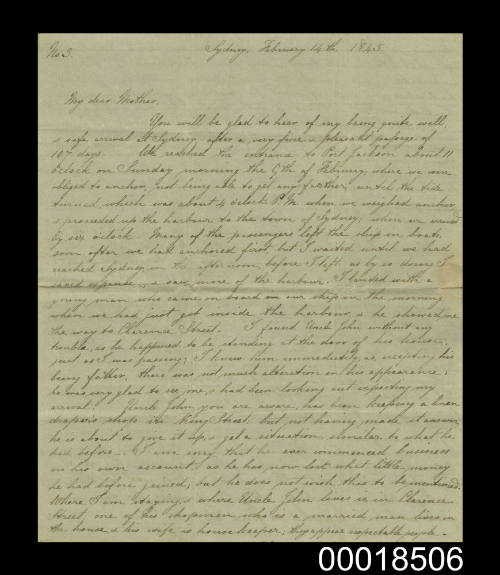 No 3.
Sydney, February 14th 1843.
My dear Mother,
You will be glad to hear of my being quite well
& safe arrival at Sydney, after a very fine & pleasant passage of
107 days. We reached the entrance to Port Jackson about 11
o'clock on Sunday morning the 9th of February, where we were
obliged to anchor, just being able to get any further, until the tide
turned, which was about 4 o'clock P.M. when we weighed anchor
& proceeded up the harbour to the town of Sydney, where we arrived
by six o'clock. Many of the passengers left the ship in boats,
soon after we had anchored first but I waited until we had
reached Sydney in the afternoon, before I left as by so doing I
saved expense, & saw more of the harbour. I landed with a
young man who came on board on our ship in the morning
when we had just got inside the harbour, & he showed me
the way to Clarence Street. I found Uncle John without any
trouble, as he happened to be standing at the door of his house,
just as I was passing; I knew him immediately, as excepting his
being fatter, there was not much alteration in his appearance;
he was very glad to see me, & had been looking out expecting my
arrival. Uncle John, you are aware, has been keeping a linen
draper's shop in King Street, but not having made it answer,
he is about to give it up, & get a situation similar to what he
had before. I am sorry that he ever commenced business
on his own account, as he has now lost what little money
he had before gained; but he does not wish this to be mentioned.
Where I am staying, & where Uncle John lives is in Clarence
Street, one of his shopmen who is a married man lives in
the house & his wife is housekeeper; they appear respectable people.
00018506